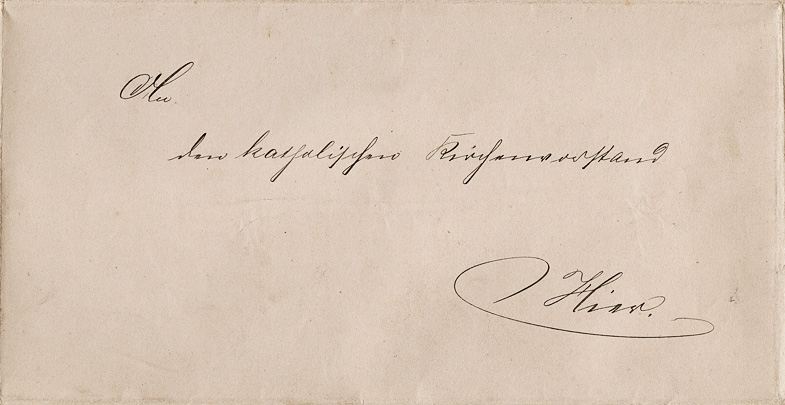 An
den katholischen Kirchenvorstand
Hier.